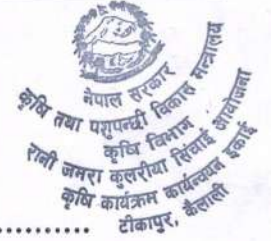 नेपाल सरकार
कृषि तथा पशुपन्छी विकास मन्त्रालय
कृषि विभाग
रानी जमरा कुलरीया सिंचाई आयोजना
कृषि कार्यक्रम कार्यन्वयन इकाई
टीकापुर, कैलाली
............